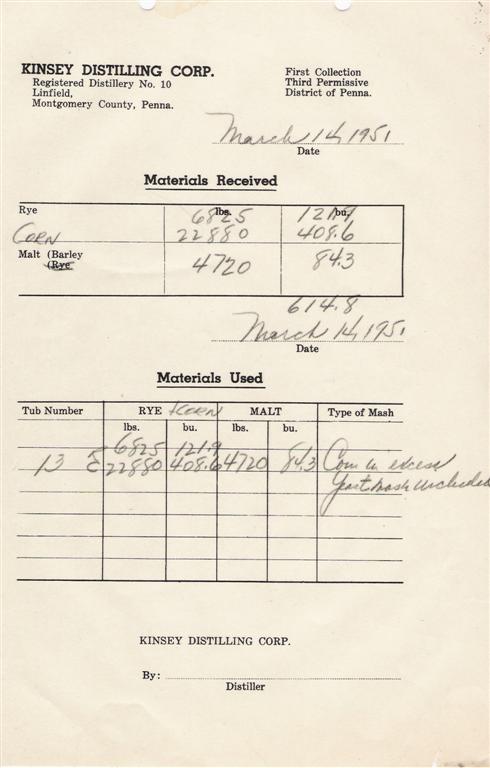 KINSEY DISTILLING CORP.
Registered Distillery No. 10
Linfield,
Montgomery County, Penna.
First Collection
Third Permissive
District of Penna.
March 14, 1951
Date
Materials Received
Rye lbs. 6825 bu. 121.9
CORN 22880 408.6
Malt (Barley 4720 84.3
(Rye
614.8
March 14, 1951
Date
Materials Used
Tub Number RYE & CORN MALT Type of Mash
lbs. bu. lbs. bu.
R 6825 121.9
13 C 22880 408.6 4720 84.3 Corn in excess
Yeast mash included
KINSEY DISTILLING CORP.
By:
Distiller